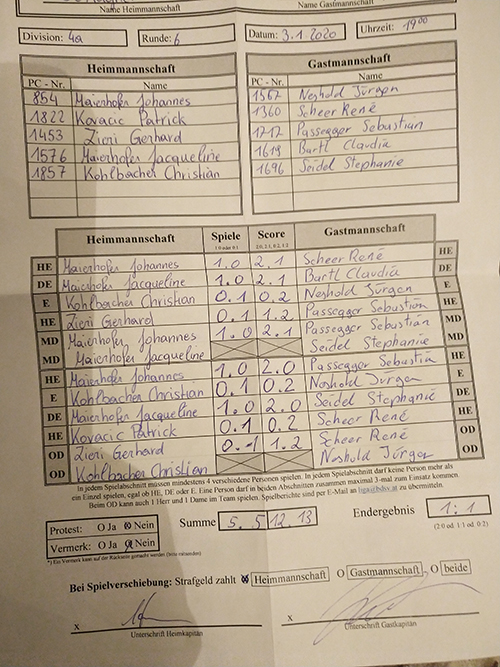 Name Heimmannschaft Name Gastmannschaft
Division: 4a Runde: 6 Datum: 3.1.2020 Uhrzeit: 19:00
Heimmannschaft Gastmannschaft
PC - Nr. Name PC - Nr. Name
854 Maierhofer Johannes 1567 Neshold Jürgen
1822 Kovacic Patrick 1360 Scheer René
1453 Zieri Gerhard 1717 Passegger Sebastian
1576 Maierhofer Jacqueline 1619 Bartl Claudia
1857 Kohlbacher Christian 1696 Seidel Stephanie
Heimmannschaft Spiele Score Gastmannschaft
1:0 oder 0:1 2:0, 2:1, 0:2, 1:2
HE Maierhofer Johannes 1:0 2:1 Scheer René HE
DE Maierhofer Jacqueline 1:0 2:1 Bartl Claudia DE
E Kohlbacher Christian 0:1 0:2 Neshold Jürgen E
HE Zieri Gerhard 0:1 1:2 Passegger Sebastian HE
MD Maierhofer Johannes 1:0 2:1 Passegger Sebastian MD
MD Maierhofer Jacqueline Seidel Stephanie MD
HE Maierhofer Johannes 1:0 2:0 Passegger Sebastian HE
E Kohlbacher Christian 0:1 0:2 Neshold Jürgen E
DE Maierhofer Jacqueline 1:0 2:0 Seidel Stephanie DE
HE Kovacic Patrick 0:1 0:2 Scheer René HE
OD Zieri Gerhard 0:1 1:2 Scheer René OD
OD Kohlbacher Christian Neshold Jürgen OD
In jedem Spielabschnitt müssen mindestens 4 verschiedene Personen spielen. In jedem Spielabschnitt darf keine Person mehr als
ein Einzel spielen, egal ob HE, DE oder E. Eine Person darf in beiden Abschnitten zusammen maximal 3-mal zum Einsatz kommen.
Beim OD kann auch 1 Herr und 1 Dame im Team spielen. Spielberichte sind per E-Mail an liga@bdsv.at zu übermitteln.
Protest: O Ja O Nein Summe 5:5 12:13 Endergebnis 1:1
Vermerk: O Ja O Nein (2:0 od. 1:1 od. 0:2)
*) Ein Vermerk kann auf der Rückseite gemacht werden (bitte umwenden)
Bei Spielverschiebung: Strafgeld zahlt Heimmannschaft O Gastmannschaft O beide
x x
Unterschrift Heimkapitän Unterschrift Gastkapitän